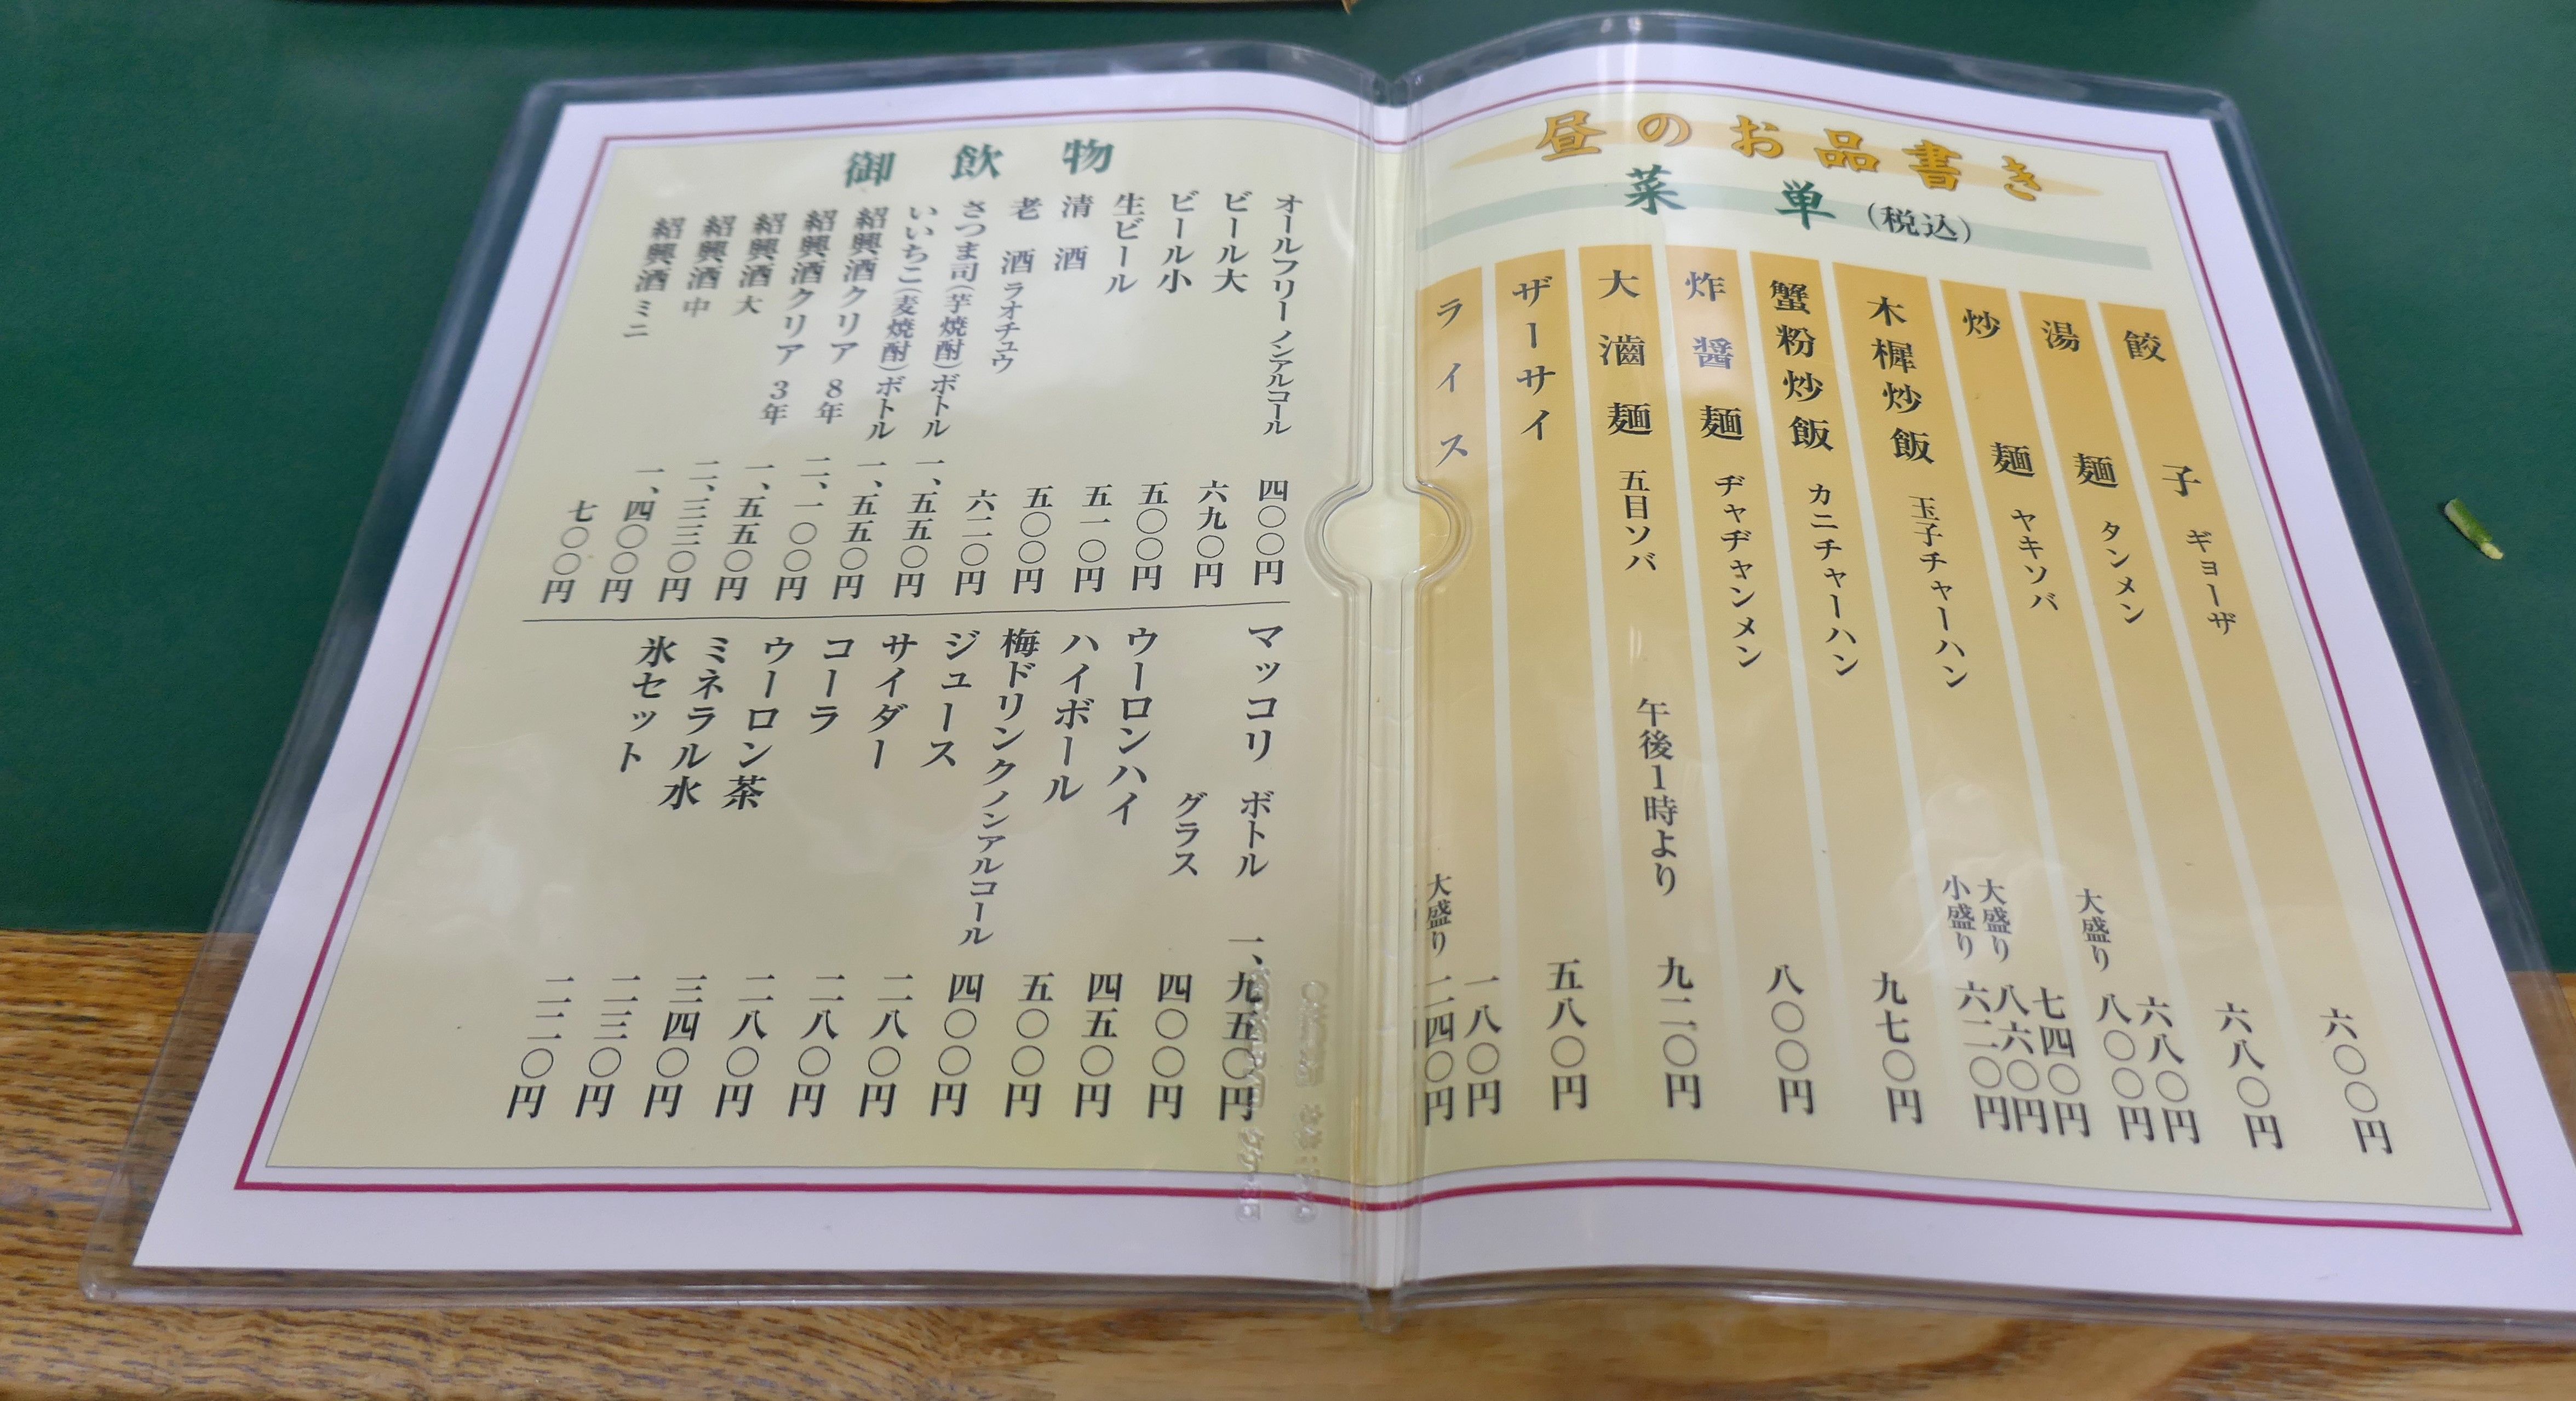 昼のお品書き
菜単(税込)
餃子 ギョーザ 六〇〇円
湯麺 タンメン 六八〇円
炒麺 ヤキソバ 六八〇円
大盛り 八〇〇円
木樨炒飯 玉子チャーハン 七四〇円
大盛り 八六〇円
小盛り 六二〇円
蟹粉炒飯 カニチャーハン 九七〇円
炸醤麺 ヂャヂャンメン 八〇〇円
大滷麺 五目ソバ 午後1時より 九二〇円
ザーサイ 五八〇円
ライス 一八〇円
大盛り 二四〇円
御飲物
オールフリー ノンアルコール 四〇〇円
ビール大 六九〇円
ビール小 五〇〇円
生ビール 五一〇円
清酒 五〇〇円
老酒 ラオチュウ 六二〇円
さつま司(芋焼酎)ボトル 一、五五〇円
いいちこ(麦焼酎)ボトル 一、五五〇円
紹興酒クリア 8年 二、一〇〇円
紹興酒クリア 3年 一、五五〇円
紹興酒 大 二、三三〇円
紹興酒 中 一、四〇〇円
紹興酒 ミニ 七〇〇円
マッコリ ボトル 一、九五〇円
グラス 四〇〇円
ウーロンハイ 四五〇円
ハイボール 五〇〇円
梅ドリンクノンアルコール 四〇〇円
ジュース 二八〇円
サイダー 二八〇円
コーラ 二八〇円
ウーロン茶 三四〇円
ミネラル水 二三〇円
氷セット 二二〇円